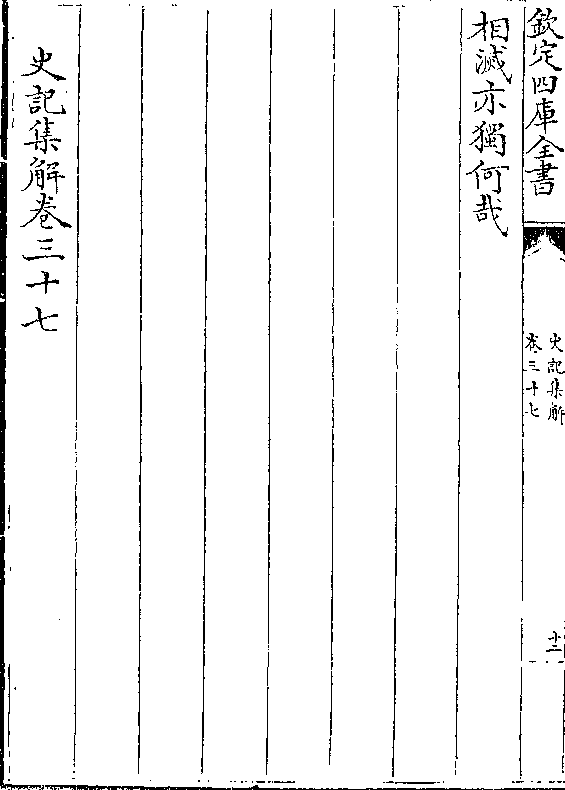 欽定四庫全書
史記集解
卷三十七
十二
相滅亦獨何哉
史記集解卷三十七